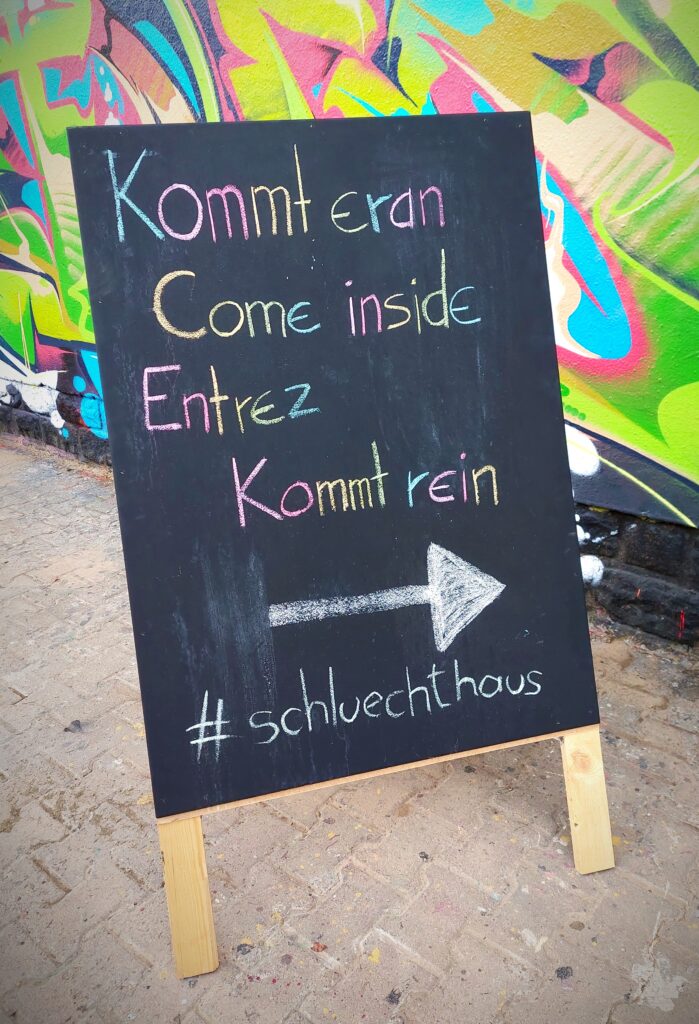 Kommt eran
Come inside
Entrez
Kommt rein
#schluechthaus